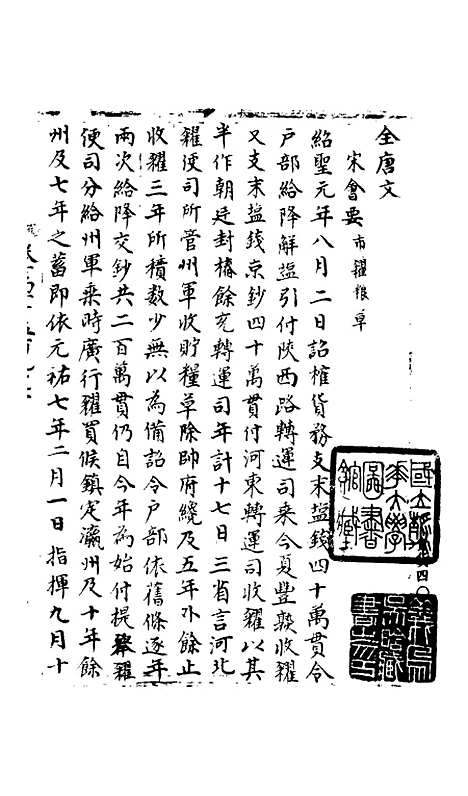 全唐文
宋會要 市糴粮草
紹聖元年八月二日詔榷貨務支末塩錢四十萬貫令
戶部給降解塩引付陝西路轉運司乘今夏豐熟收糴
又支末塩錢京鈔四十萬貫付河東轉運司收糴以其
半作朝廷封樁餘充轉運司年計十七日三省言河北
糴便司所管州軍收貯糧草除帥府纔及五年外餘止
收糴三年所積数少無以為備詔令戶部依舊條逐年
兩次給降交鈔共二百萬貫仍自今年為始付提舉糴
便司分給州軍乘時廣行糴買候鎮定瀛州及十年餘
州及七年之蓄即依元祐七年二月一日指揮九月十
國立清華大學圖書館藏